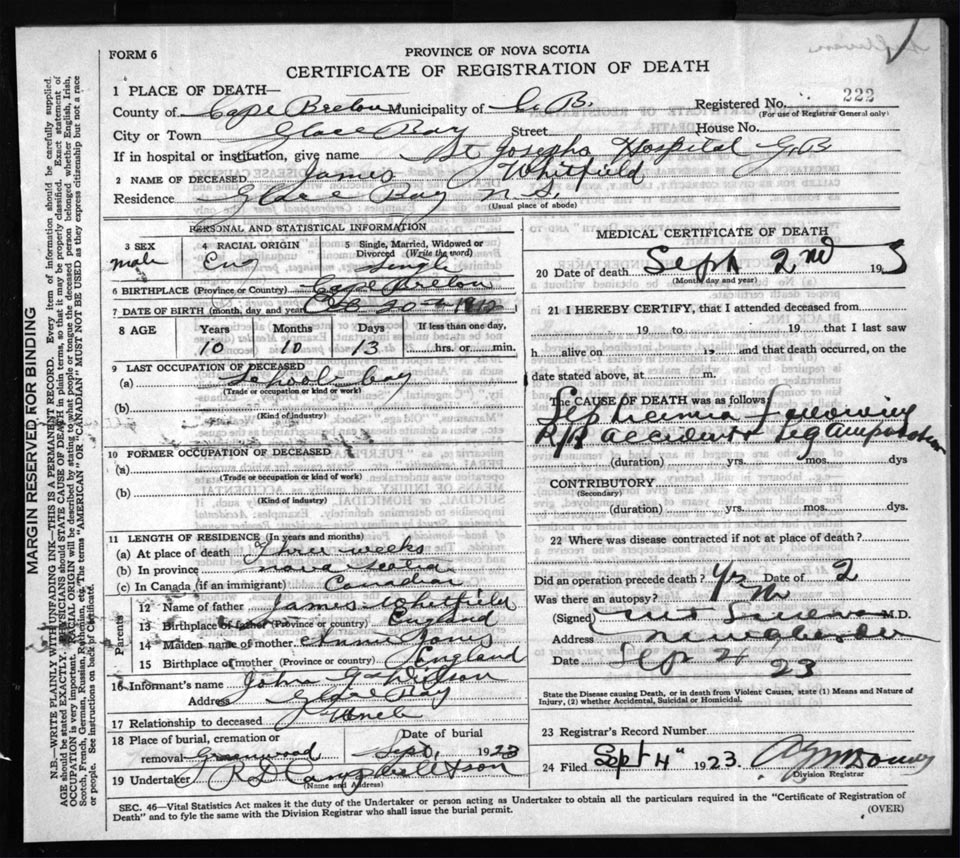 FORM 6
PROVINCE OF NOVA SCOTIA
CERTIFICATE OF REGISTRATION OF DEATH
1 PLACE OF DEATH—
County of Cape Breton Municipality of C. B. Registered No. 222
(For use of Registrar General only)
City or Town Glace Bay Street House No.
If in hospital or institution, give name St Josephs Hospital G.B.
2 NAME OF DECEASED James Whitfield
Residence Glace Bay N.S.
(Usual place of abode)
PERSONAL AND STATISTICAL INFORMATION
3 SEX
male
4 RACIAL ORIGIN
Eng
5 Single, Married, Widowed or Divorced (Write the word)
Single
6 BIRTHPLACE (Province or Country) Cape Breton
7 DATE OF BIRTH (month, day and year) 20th 1912
8 AGE Years Months Days If less than one day,
10 10 13 hrs. or min.
9 LAST OCCUPATION OF DECEASED
(a) School boy
(Trade or occupation or kind of work)
(b)
(Kind of industry)
10 FORMER OCCUPATION OF DECEASED
(a)
(Trade or occupation or kind of work)
(b)
(Kind of industry)
11 LENGTH OF RESIDENCE (In years and months)
(a) At place of death Three weeks
(b) In province nova scotia
(c) In Canada (if an immigrant) Canadian
Parents
12 Name of father James Whitfield
13 Birthplace of father (Province or country) England
14 Maiden name of mother Annie Jones
15 Birthplace of mother (Province or country) England
16 Informant's name John G Wilson
Address Glace Bay
17 Relationship to deceased Uncle
18 Place of burial, cremation or removal Greenwood
Date of burial
Sept. 1923
19 Undertaker Campbell & Son
(Name and Address)
MEDICAL CERTIFICATE OF DEATH
20 Date of death Sept 2nd 19 3
(Month, day and year)
21 I HEREBY CERTIFY, that I attended deceased from
19 to 19 that I last saw
h alive on 19 and that death occurred, on the
date stated above, at m.
The CAUSE OF DEATH was as follows:
Septicemia following
R/R accident leg amputation
(duration) yrs. mos. dys
CONTRIBUTORY
(Secondary)
(duration) yrs. mos. dys.
22 Where was disease contracted if not at place of death?
Did an operation precede death? Yes Date of 2
Was there an autopsy? No
(Signed) M.D.
Address
Date Sep 2 23
State the Disease causing Death, or in death from Violent Causes, state (1) Means and Nature of
Injury, (2) whether Accidental, Suicidal or Homicidal.
23 Registrar's Record Number
24 Filed Sept 4th 1923.
Division Registrar
SEC. 46—Vital Statistics Act makes it the duty of the Undertaker or person acting as Undertaker to obtain all the particulars required in the "Certificate of Registration of
Death" and to fyle the same with the Division Registrar who shall issue the burial permit.
(OVER)
MARGIN RESERVED FOR BINDING
N.B.—WRITE PLAINLY WITH UNFADING INK—THIS IS A PERMANENT RECORD. Every item of information should be carefully supplied.
AGE should be stated EXACTLY. PHYSICIANS should STATE CAUSE OF DEATH in plain terms, so that it may be properly classified. Exact statement of
OCCUPATION is very important. RACIAL ORIGIN will be described by stating to what people or tongue the deceased person belonged whether English, Irish,
Scotch, French, German, Russian, Ruthenian, etc. The terms "AMERICAN" OR "CANADIAN" MUST NOT BE USED as they express citizenship but not a race
or people. See instructions on back of Certificate.